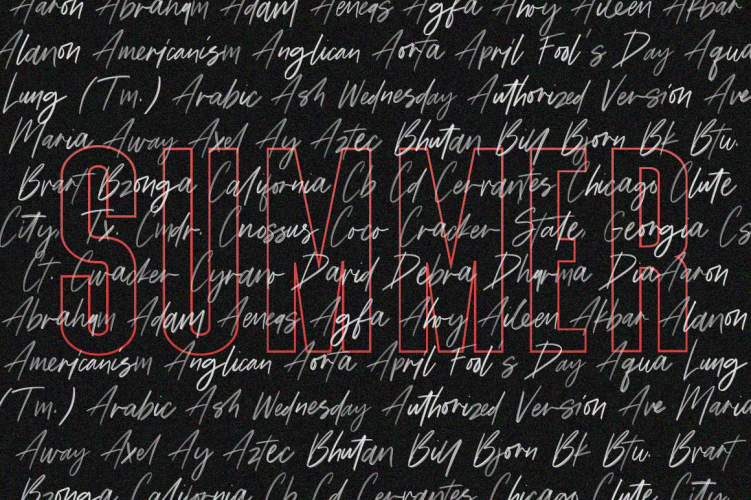 Aaron Abraham Adam Aeneas Agfa Ahoy Aileen Akbar
Alanon Americanism Anglican Aorta April Fool's Day Aqua
Lung (Tm.) Arabic Ash Wednesday Authorized Version Ave
Maria Away Axel Ay Aztec Bhutan Bill Bjorn Bk Btu.
Brart Bzonga California Cb Cd Cervantes Chicago Clute
City, Tx. Cmdr. Cnossus Coco Cracker State, Georgia Cs
Ct. Cwacker Cyrano David Debra Dharma Diu Aaron
SUMMER
Abraham Adam Aeneas Agfa Ahoy Aileen Akbar Alanon
Americanism Anglican Aorta April Fool's Day Aqua Lung
(Tm.) Arabic Ash Wednesday Authorized Version Ave Maria
Away Axel Ay Aztec Bhutan Bill Bjorn Bk Btu. Brart
Bzonga California Cb Cd Cervantes Chicago Clute City